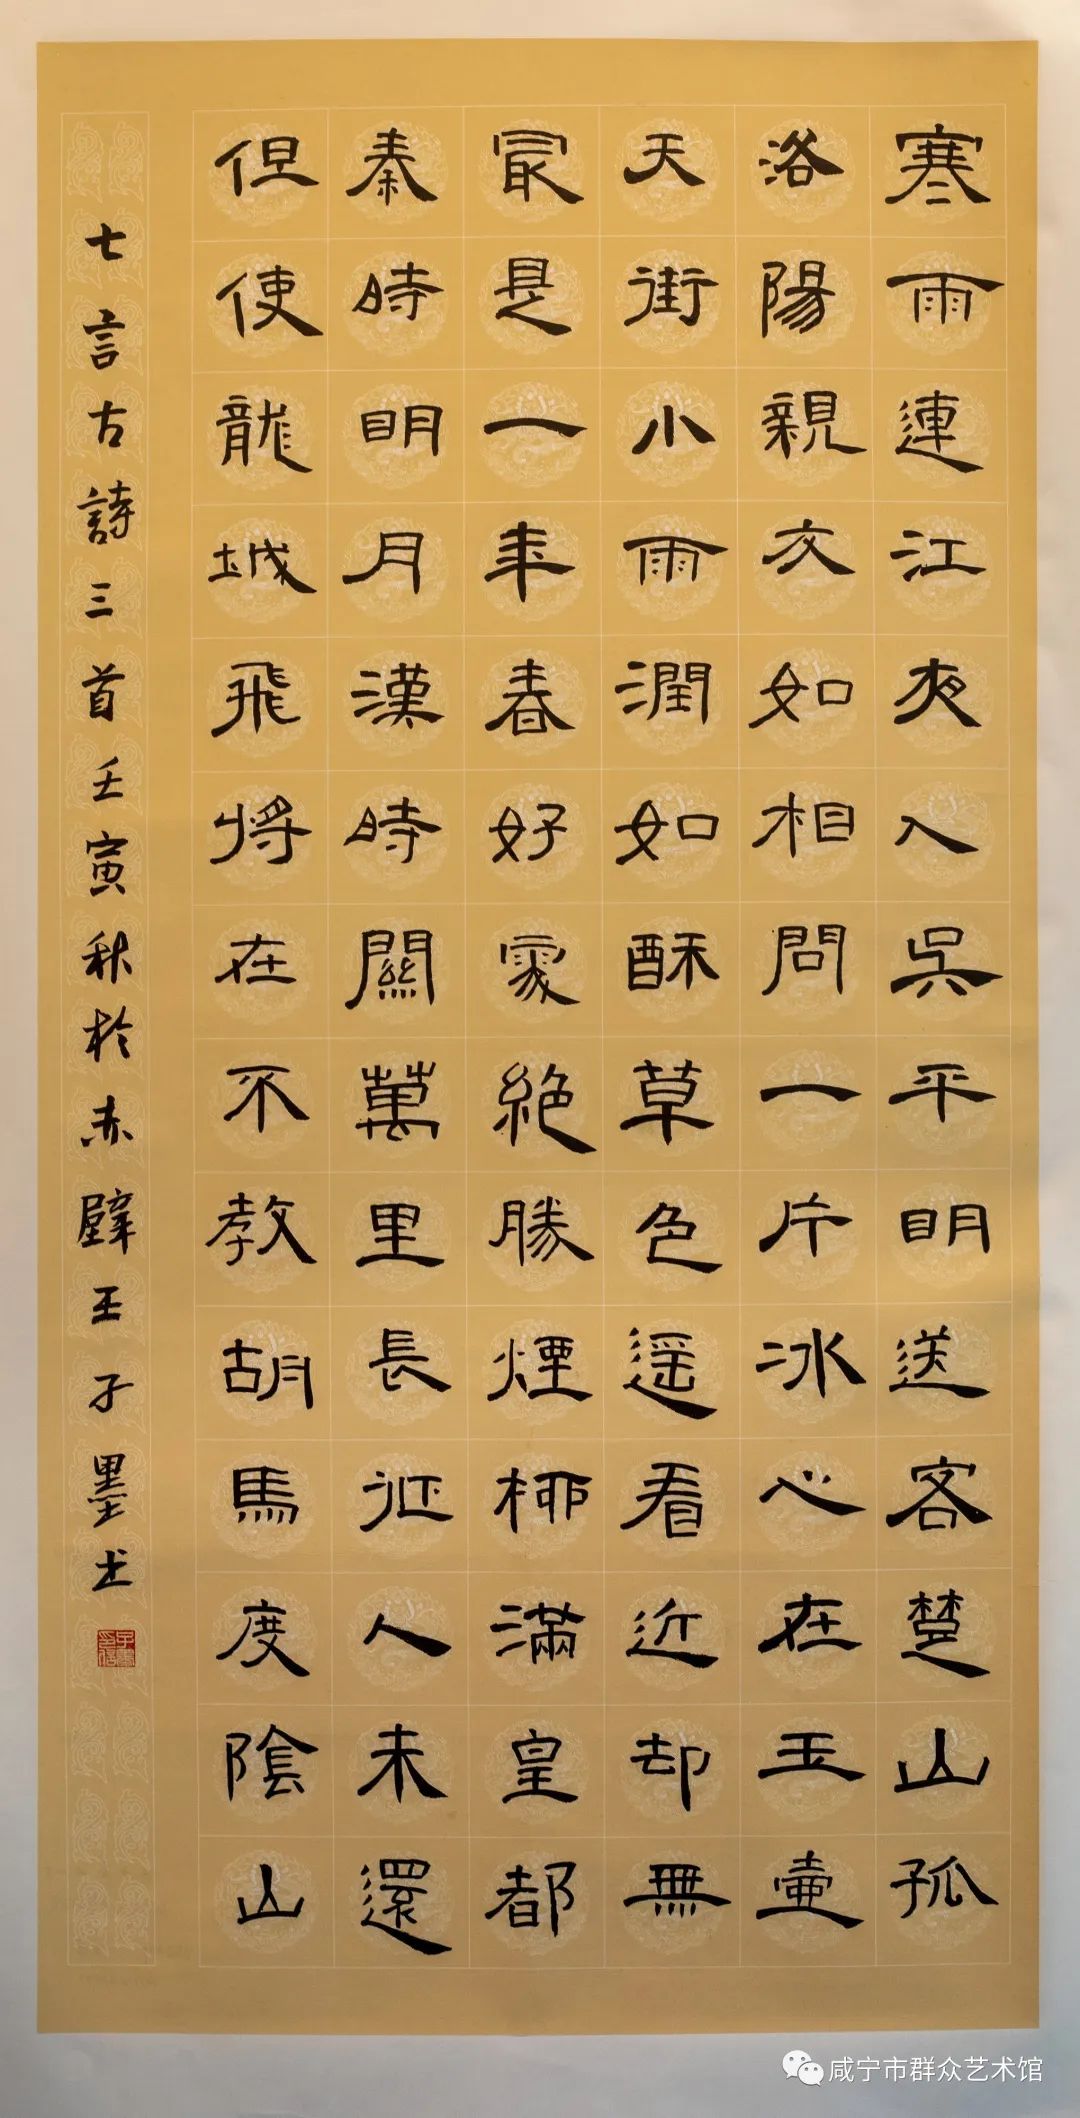 寒雨連江夜入吳平明送客楚山孤
洛陽親友如相問一片冰心在玉壺
天街小雨潤如酥草色遥看近却無
最是一年春好處絶勝煙柳滿皇都
秦時明月漢時關萬里長征人未還
但使龍城飛將在不教胡馬度陰山
七言古詩三首壬寅秋於赤壁王子墨书
咸宁市群众艺术馆